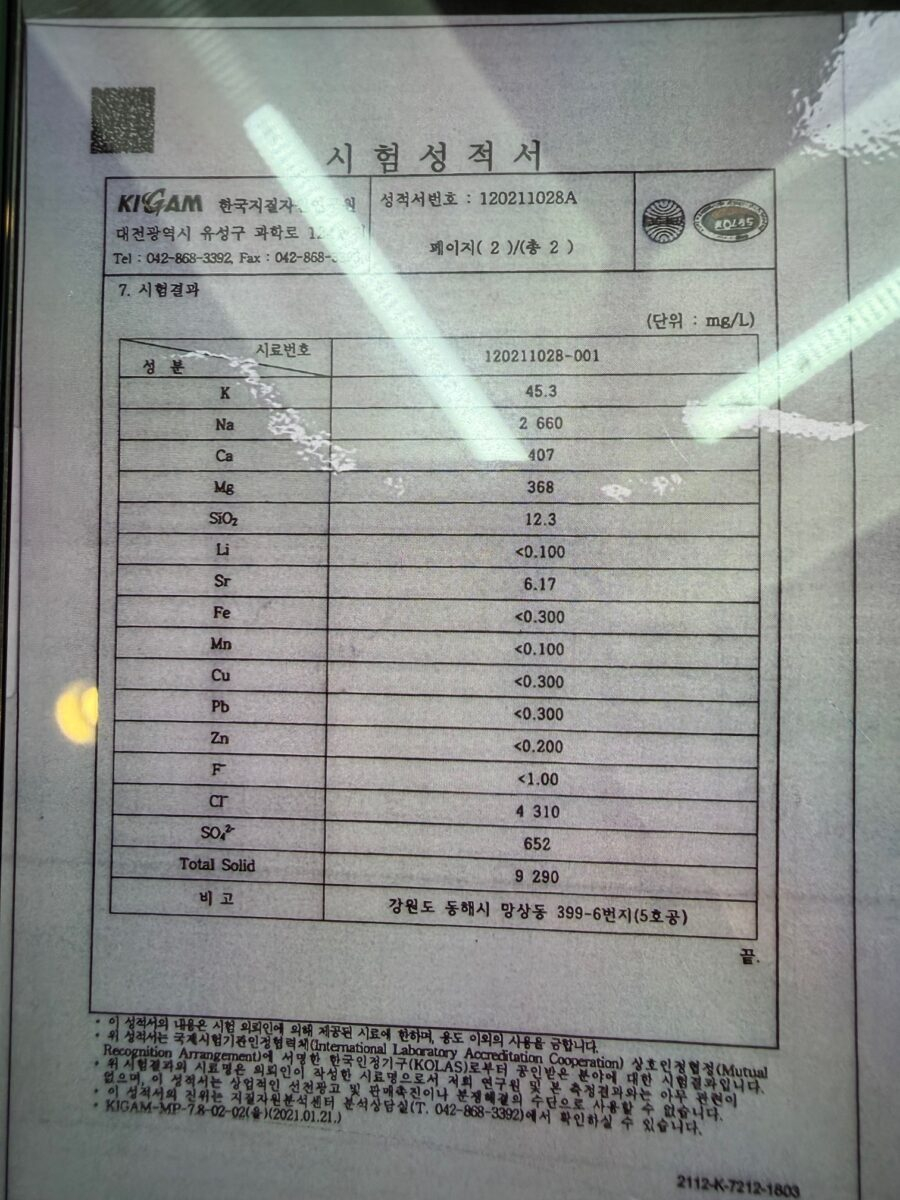 시 험 성 적 서
KIGAM 한국지질자
성적서번호 : 120211028A
KOLAS
대전광역시 유성구 과학로
페이지( 2 )/(총 2 )
Tel : 042-868-3392, Fax : 042-868-
7. 시험결과
(단위 : mg/L)
성 분 시료번호 120211028-001
K 45.3
Na 2 660
Ca 407
Mg 368
SiO₂ 12.3
Li <0.100
Sr 6.17
Fe <0.300
Mn <0.100
Cu <0.300
Pb <0.300
Zn <0.200
F⁻ <1.00
Cl⁻ 4 310
SO₄²⁻ 652
Total Solid 9 290
비 고 강원도 동해시 망상동 399-6번지(5호공)
끝.
· 이 성적서의 내용은 시험 의뢰인에 의해 제공된 시료에 한하며, 용도 이외의 사용을 금합니다.
· 위 성적서는 국제시험기관인정협력체(International Laboratory Accreditation Cooperation) 상호인정협정(Mutual
Recognition Arrangement)에 서명한 한국인정기구(KOLAS)로부터 공인받은 분야에 대한 시험결과입니다.
· 위 시험결과의 시료명은 의뢰인이 작성한 시료명으로서 저희 연구원 및 본 측정결과와는 아무 관련이
없으며, 이 성적서는 상업적인 선전광고 및 판매촉진이나 분쟁해결의 수단으로 사용할 수 없습니다.
· 이 성적서의 진위는 지질자원분석센터 분석상담실(T. 042-868-3392)에서 확인하실 수 있습니다.
· KIGAM-MP-7.8-02-02(을)(2021.01.21.)
2112-K-7212-1803